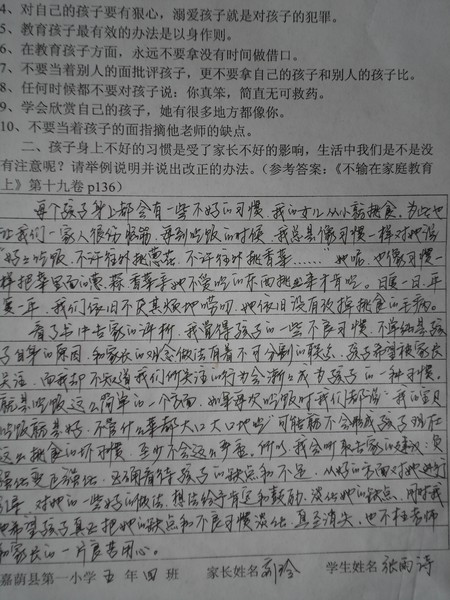 4、对自己的孩子要有狠心，溺爱孩子就是对孩子的犯罪。
5、教育孩子最有效的办法是以身作则。
6、在教育孩子方面，永远不要拿没有时间做借口。
7、不要当着别人的面批评孩子，更不要拿自己的孩子和别人的孩子比。
8、任何时候都不要对孩子说：你真笨，简直无可救药。
9、学会欣赏自己的孩子，她有很多地方都像你。
10、不要当着孩子的面指摘他老师的缺点。
二、孩子身上不好的习惯是受了家长不好的影响，生活中我们是不是没
有注意呢？请举例说明并说出改正的办法。（参考答案：《不输在家庭教育
上》第十九卷 p136）
每个孩子身上都会有一些不好的习惯，我的女儿从小就挑食，为此也
让我们一家人很伤脑筋，每到吃饭的时候，我总是像习惯一样对她说
“好好吃饭，不许往外挑葱花，不许往外挑香菜……”她呢，也像习惯一
样把菜里面的葱、蒜、香菜等她不爱吃的东西挑出来才肯吃。日复一日，年
复一年，我们依旧不厌其烦地唠叨，她依旧没有改掉挑食的毛病。
看了书中专家的评析，我觉得孩子的一些不良习惯，不单纯是孩
子自身的原因，和家长的观念做法有着不可分割的联系，孩子希望被家长
关注，而我却不知道我们所关注的行为会渐渐成为孩子的一种习惯，
就是吃饭这么简单的一个方面，如果每次吃饭时我们都说：“我的宝贝
吃饭就是好，不管什么都大口大口地吃”可能就不会形成孩子现在
这么挑食的坏习惯，至少不会这么严重，所以，我会听取专家的建议：
强化变正强化，正确看待孩子的缺点和不足，从好的方面对她进行
引导，对她的一些好的做法、想法给予肯定和鼓励，淡化她的缺点，同时我
也希望孩子真正把她的缺点和不良习惯淡化，直至消失，也不枉老师
和家长的一片良苦用心。
嘉荫县第一小学 五 年 四 班 家长姓名 刘玲 学生姓名 张雨诗